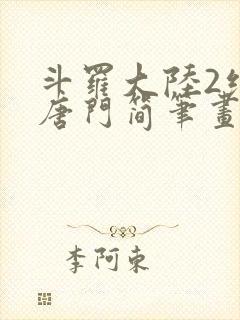 斗羅大陸2
唐門简筆畫
李阿東